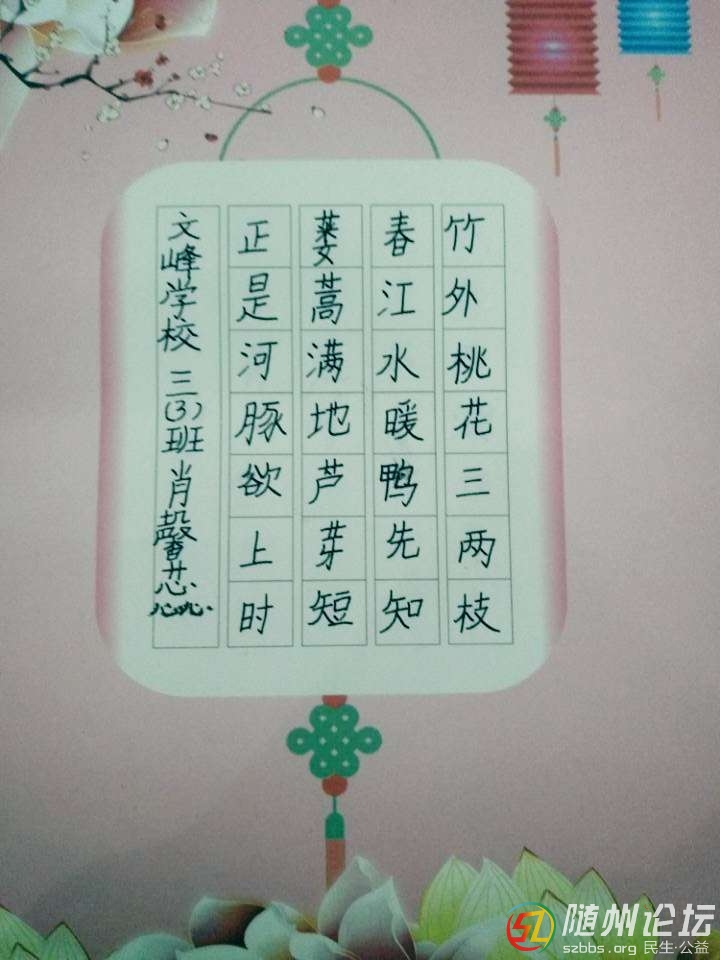 竹外桃花三两枝
春江水暖鸭先知
蒌蒿满地芦芽短
正是河豚欲上时
文峰学校 三(3)班 肖馨蕊
随州论坛
szbbs.org 民生·公益